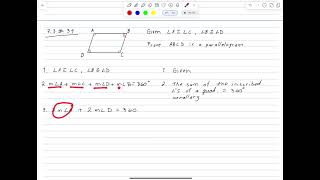 7.3 # 39
A B
D C
Given ∠A ≅ ∠C, ∠B ≅ ∠D
Prove ABCD is a parallelogram
1. ∠A ≅ ∠C, ∠B ≅ ∠D 1. Given
2. m∠A + m∠C + m∠D + m∠B = 360° 2. The sum of the inscribed
∠'s of a quad. = 360°
corollary
3. m∠ + 2 m∠D = 360